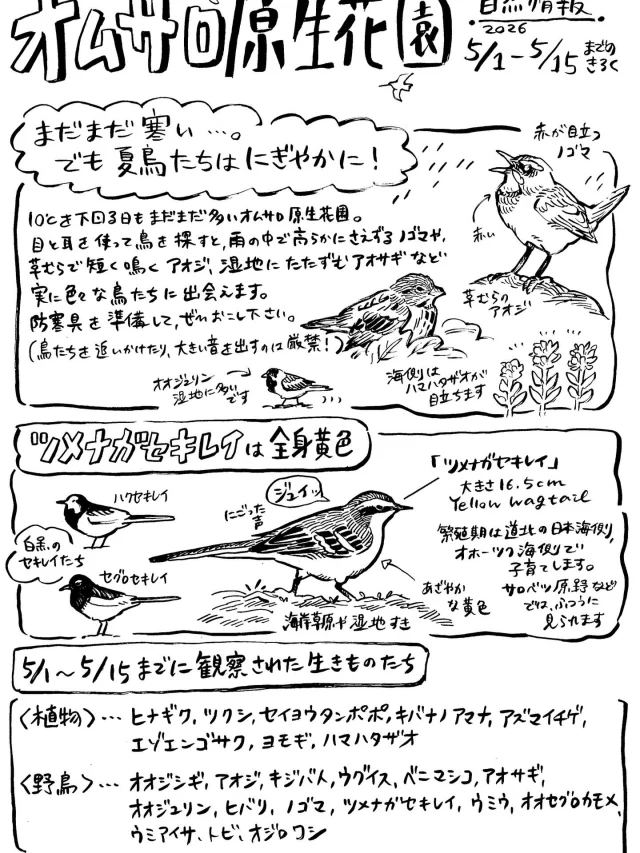 オムサロ原生花園
自然情報
2026
5/1-5/15 までの
きろく
まだまだ寒い…。
でも夏鳥たちはにぎやかに！
赤が目立つ
ノゴマ
赤い
10℃を下回る日もまだまだ多いオムサロ原生花園。
目と耳を使って鳥を探すと、雨の中で高らかにさえずるノゴマや、
草むらで短く鳴くアオジ、湿地にたたずむアオサギなど
実に色々な鳥たちに出会えます。
防寒具を準備して、ぜひおこし下さい。
(鳥たちを追いかけたり、大きい音を出すのは厳禁！)
草むらの
アオジ
オオジュリン
湿地に多い
です
海側は
ハマハタザオが
目立ちます
ツメナガセキレイは全身黄色
ハクセキレイ
白黒の
セキレイたち
セグロセキレイ
ジュイッ
にごった
声
あざやか
な黄色
海岸草原や湿地すき
「ツメナガセキレイ」
大きさ16.5cm
Yellow wagtail
繁殖期は道北の日本海側,
オホーツク海側で
子育てします。
サロベツ原野など
では、ふつうに
見られます
5/1～5/15までに観察された生きものたち
〈植物〉… ヒナギク, ツクシ, セイヨウタンポポ, キバナノアマナ, アズマイチゲ,
エゾエンゴサク, ヨモギ, ハマハタザオ
〈野鳥〉… オオジシギ, アオジ, キジバト, ウグイス, ベニマシコ, アオサギ,
オオジュリン, ヒバリ, ノゴマ, ツメナガセキレイ, ウミウ, オオセグロカモメ,
ウミアイサ, トビ, オジロワシ